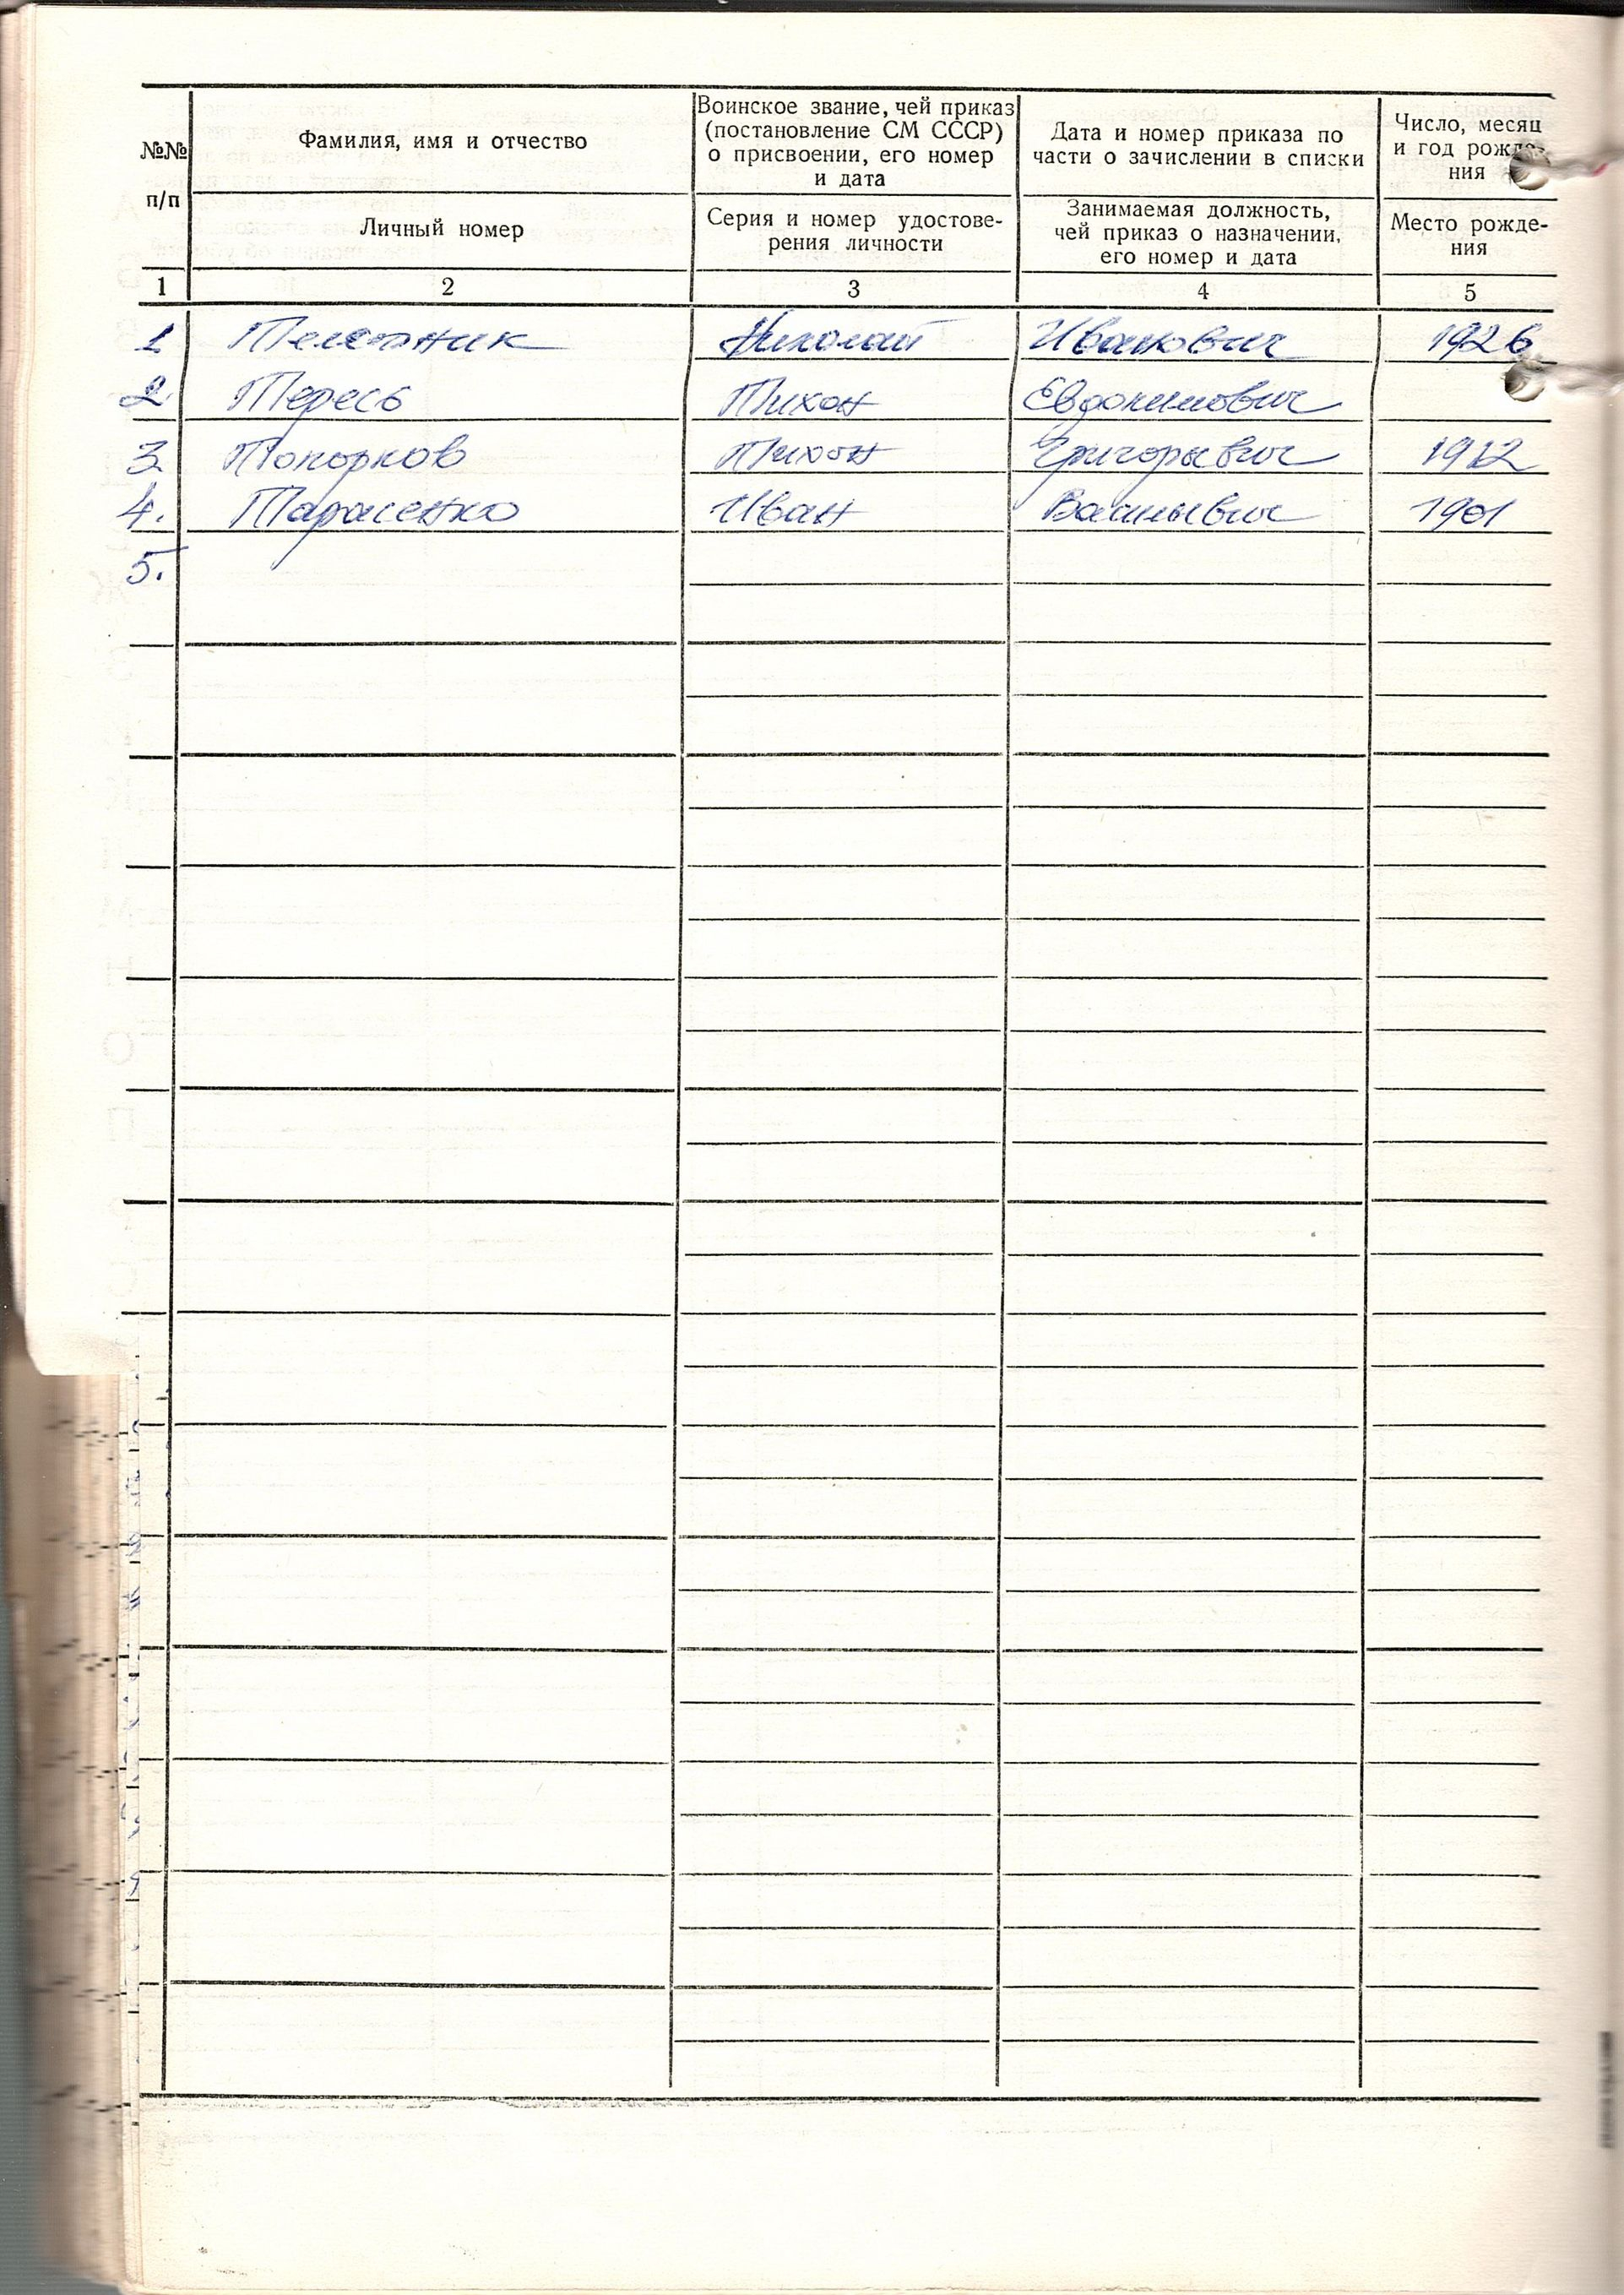 №№ п/п
Фамилия, имя и отчество
Личный номер
Воинское звание, чей приказ
(постановление СМ СССР)
о присвоении, его номер
и дата
Серия и номер удостове-
рения личности
Дата и номер приказа по
части о зачислении в списки
Занимаемая должность,
чей приказ о назначении,
его номер и дата
Число, месяц
и год рожде-
ния
Место рожде-
ния
1 2 3 4 5
1. Николай Иванович 1926
2. Тересь Тихон Евдокимович
3. Топорков Тихон Григорьевич 1912
4. Тарасенко Иван Васильевич 1901
5.